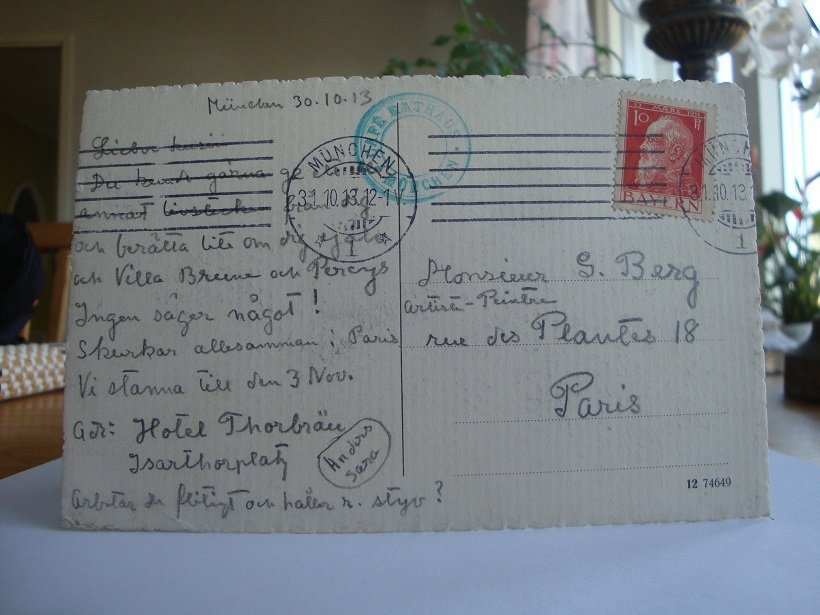 München 30.10.13
Du kunde gärna ge
annat livstecken från dig
och berätta lite om dig själv
och Villa Brune och Percys
Ingen säger något!
Skurkar allesamman i Paris
Vi stanna till den 3 Nov.
Adr: Hotel Thorbräu
Isarthorplatz
Anders
Sara
Arbetar du flitigt och håller r. styv?
CAFÉ RATHAUS
MÜNCHEN
MÜNCHEN
31.10.13.12-1 V
1
12. MÄRZ 1911
10 Pf
BAYERN
MÜNCHEN
31.10.13.1
1
Monsieur G. Berg
Artiste-Peintre
rue des Plantes 18
Paris
12 74649